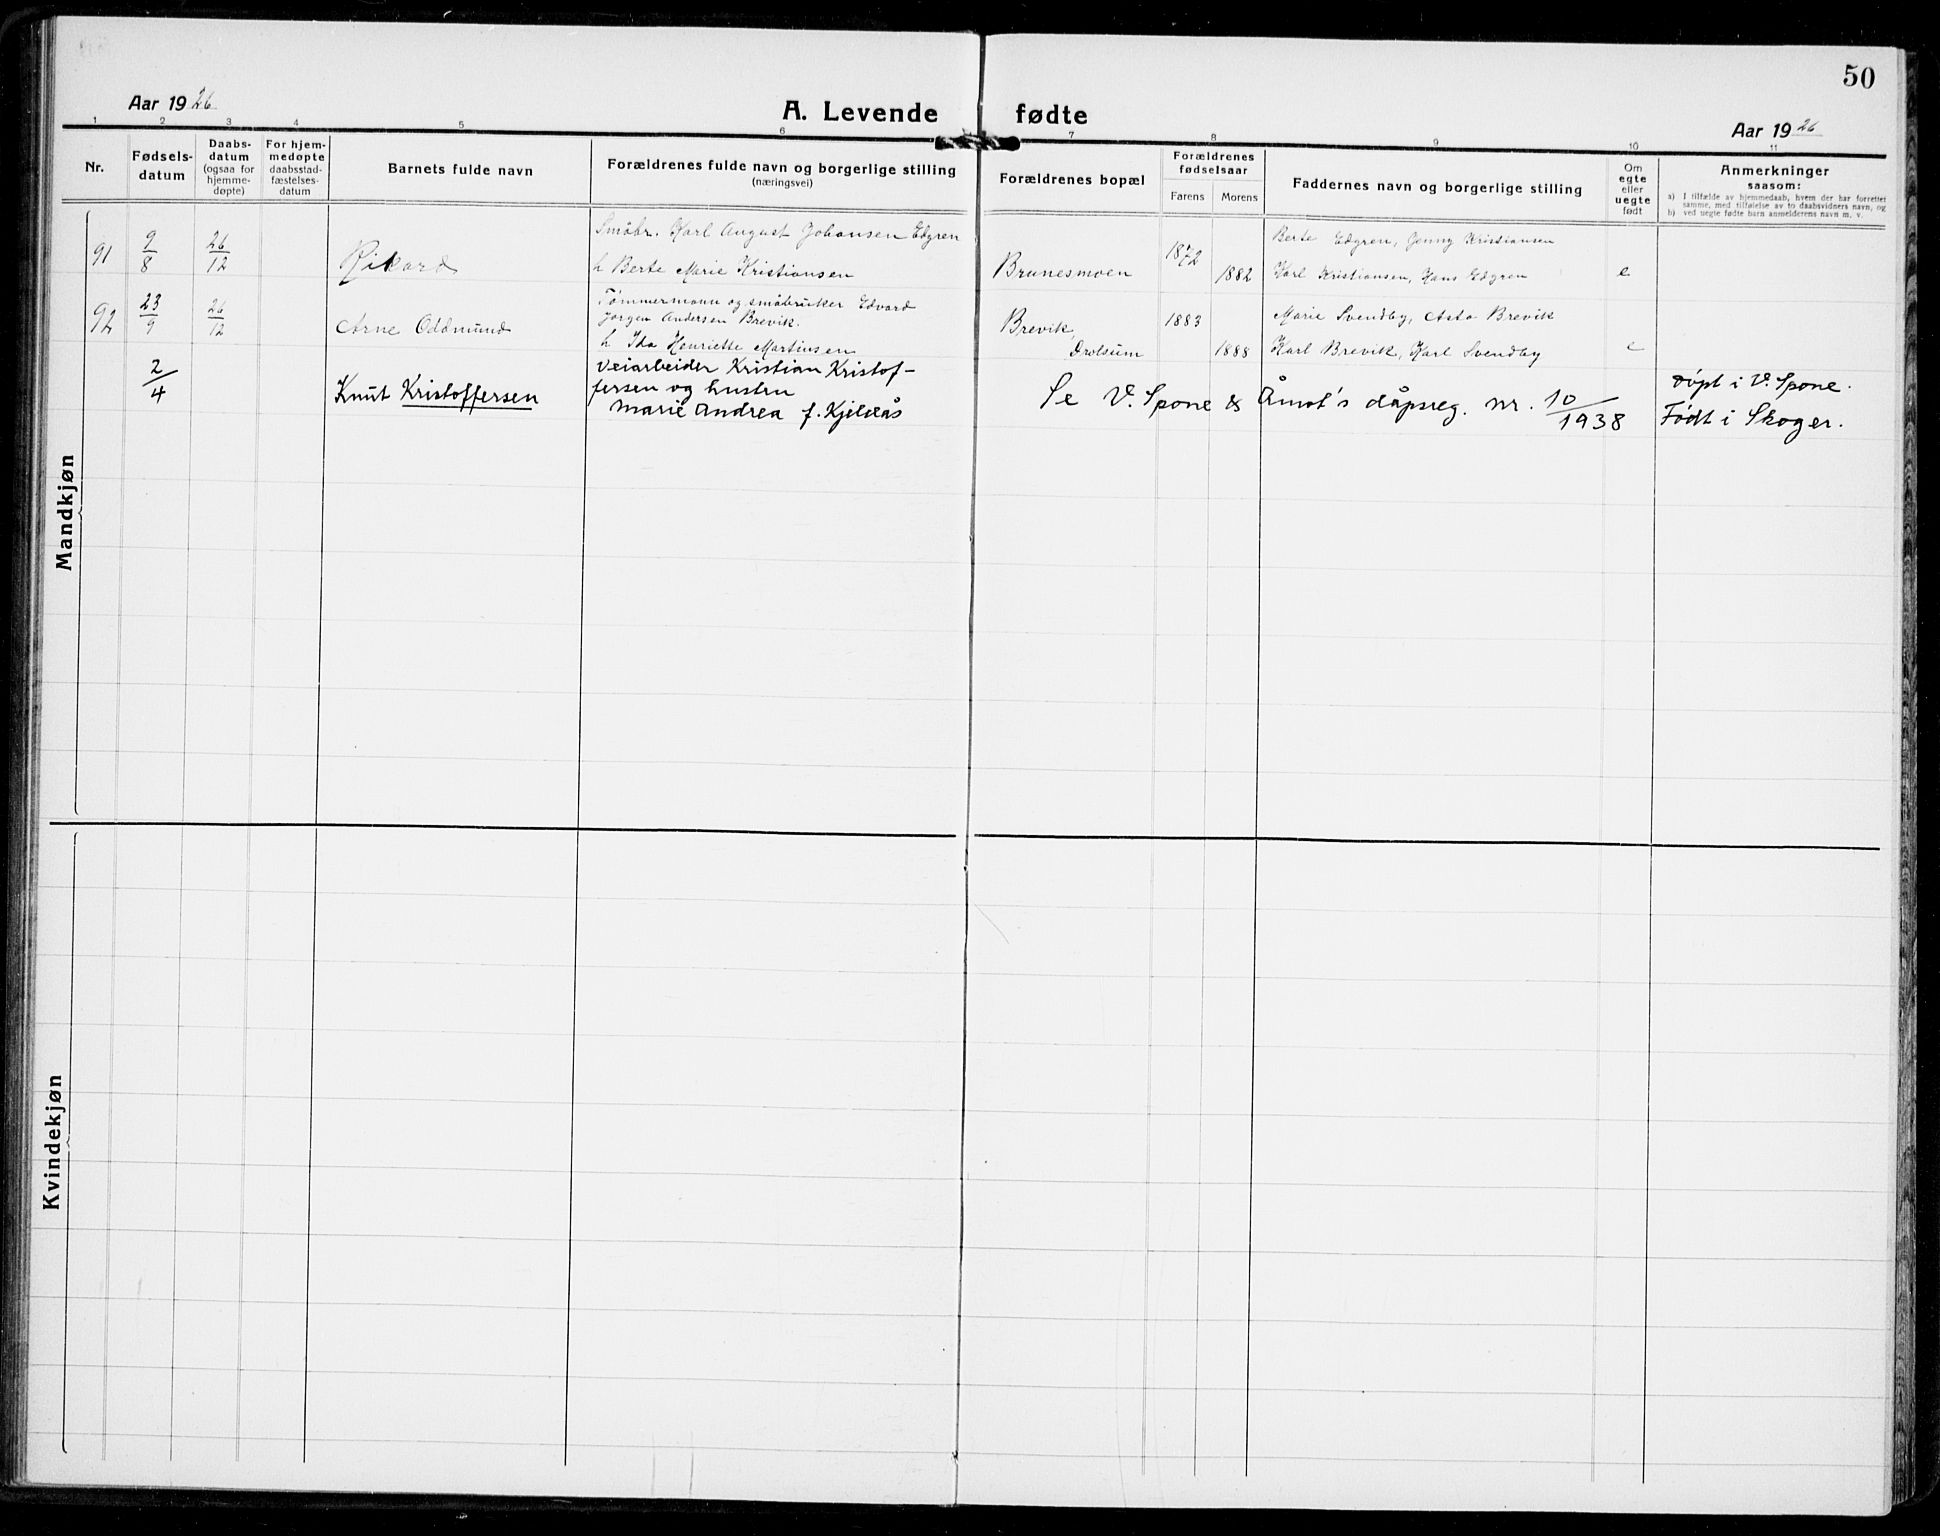 50
Aar 1926
A. Levende fødte
Aar 1926
1 2 3 4 5 6 7 8 9 10 11
Nr.
Fødsels-
datum
Daabs-
datum
(ogsaa for
hjemme-
døpte)
For hjem-
medøpte
daabsstad-
fæstelses-
datum
Barnets fulde navn
Forældrenes fulde navn og borgerlige stilling
(næringsvei)
Forældrenes bopæl
Forældrenes
fødselsaar
Farens Morens
Faddernes navn og borgerlige stilling
Om
egte
eller
uegte
født
Anmerkninger
saasom:
a) I tilfælde av hjemmedaab, hvem der har forrettet
samme, med tilføielse av to daabsvidners navn, og
b) ved uegte fødte barn anmelderens navn m. v.
Mandkjøn
91 9/8 26/12 Rikard
Småbr. Karl August Johansen Edgren
h Berte Marie Kristiansen
Brunesmoen
1872 1882
Berte Edgren, Jenny Kristiansen
Karl Kristiansen, Hans Edgren
e
92 23/9 26/12 Arne Oddmund
Tømmermann og småbruker Edvard
Jørgen Andersen Brevik.
h Ida Henriette Martinsen
Brevik,
Drolsum
1883 1888
Marie Svendby, Asta Brevik
Karl Brevik, Karl Svendby
e
2/4 Knut Kristoffersen
veiarbeider Kristian Kristof-
fersen og hustru
Marie Andrea f. Kjeldås
Se V. Spone & Åmot's dåpsreg. nr. 10/1938
døpt i V. Spone.
Født i Skoger.
Kvindekjøn